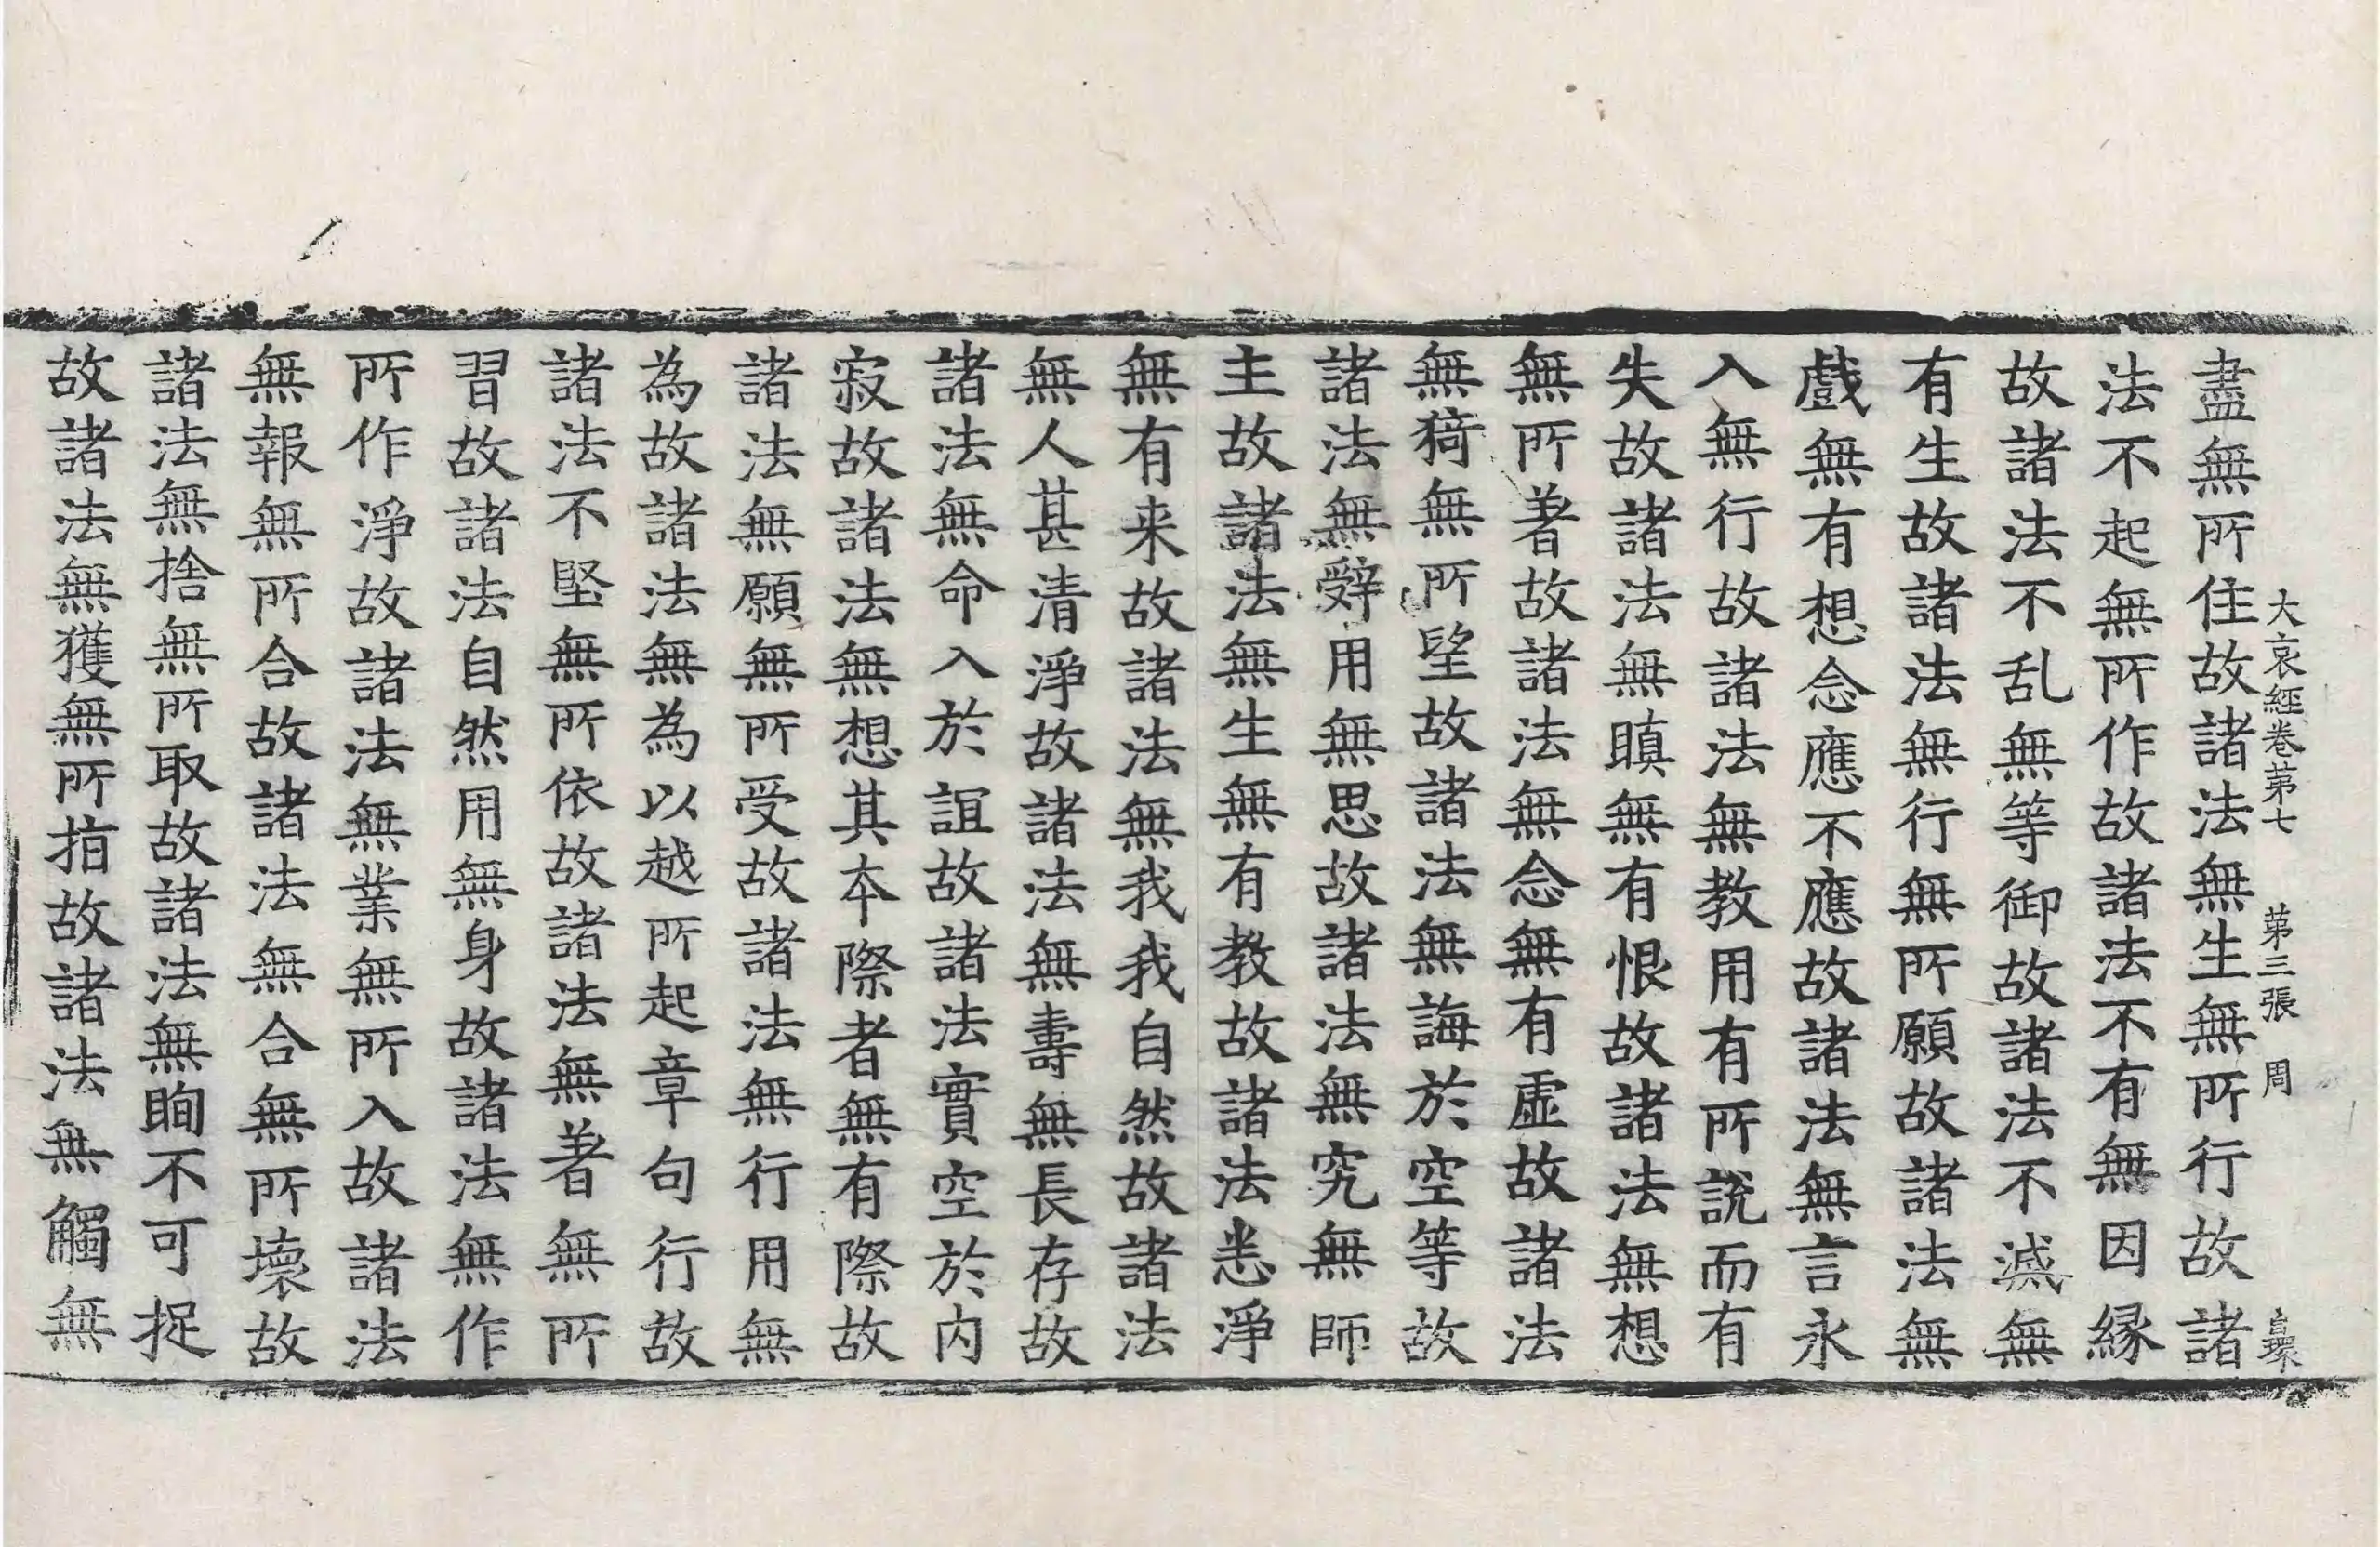 大哀經卷第七　第三張　周
盡無所住故諸法無生無所行故諸
法不起無所作故諸法不有無因縁
故諸法不乱無等御故諸法不滅無
有生故諸法無行無所願故諸法無
戲無有想念應不應故諸法無言永
入無行故諸法無教用有所說而有
失故諸法無瞋無有恨故諸法無想
無所著故諸法無念無有虛故諸法
無猗無所望故諸法無誨於空等故
諸法無辤用無思故諸法無究無師
主故諸法無生無有教故諸法悉淨
無有来故諸法無我我自然故諸法
無人甚清淨故諸法無壽無長存故
諸法無命入於誼故諸法實空於内
寂故諸法無想其本際者無有際故
諸法無願無所受故諸法無行用無
為故諸法無為以越所起章句行故
諸法不堅無所依故諸法無著無所
習故諸法自然用無身故諸法無作
所作淨故諸法無業無所入故諸法
無報無所合故諸法無合無所壞故
諸法無捨無所取故諸法無眴不可捉
故諸法無獲無所指故諸法無觸無